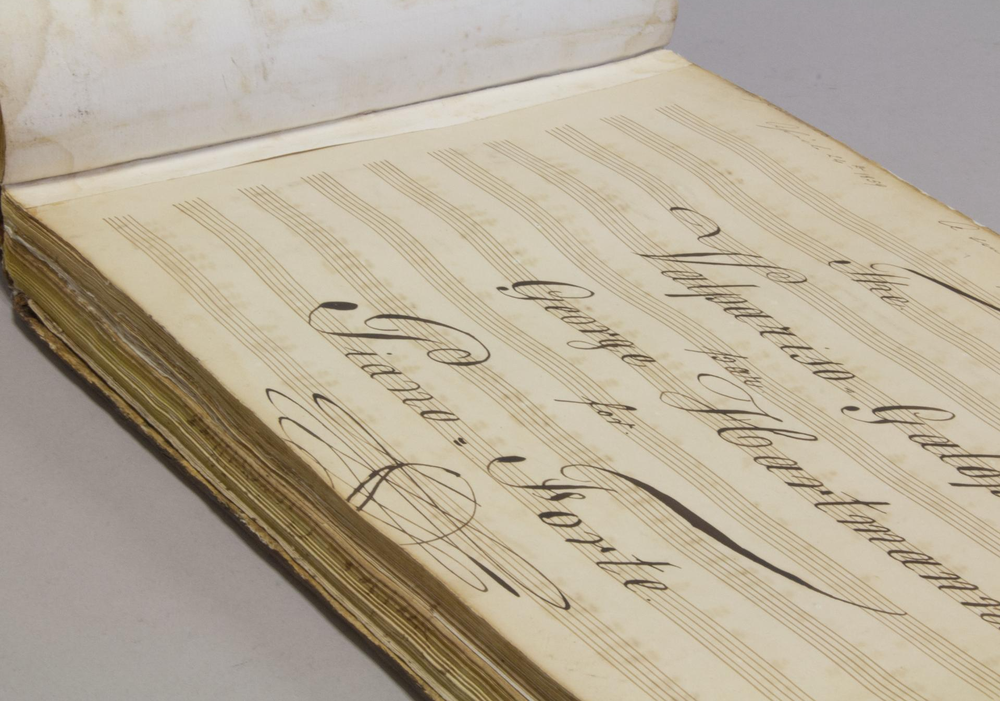 The
Valpariso Galop
par
George Hartmann
for
Piano = Forte.